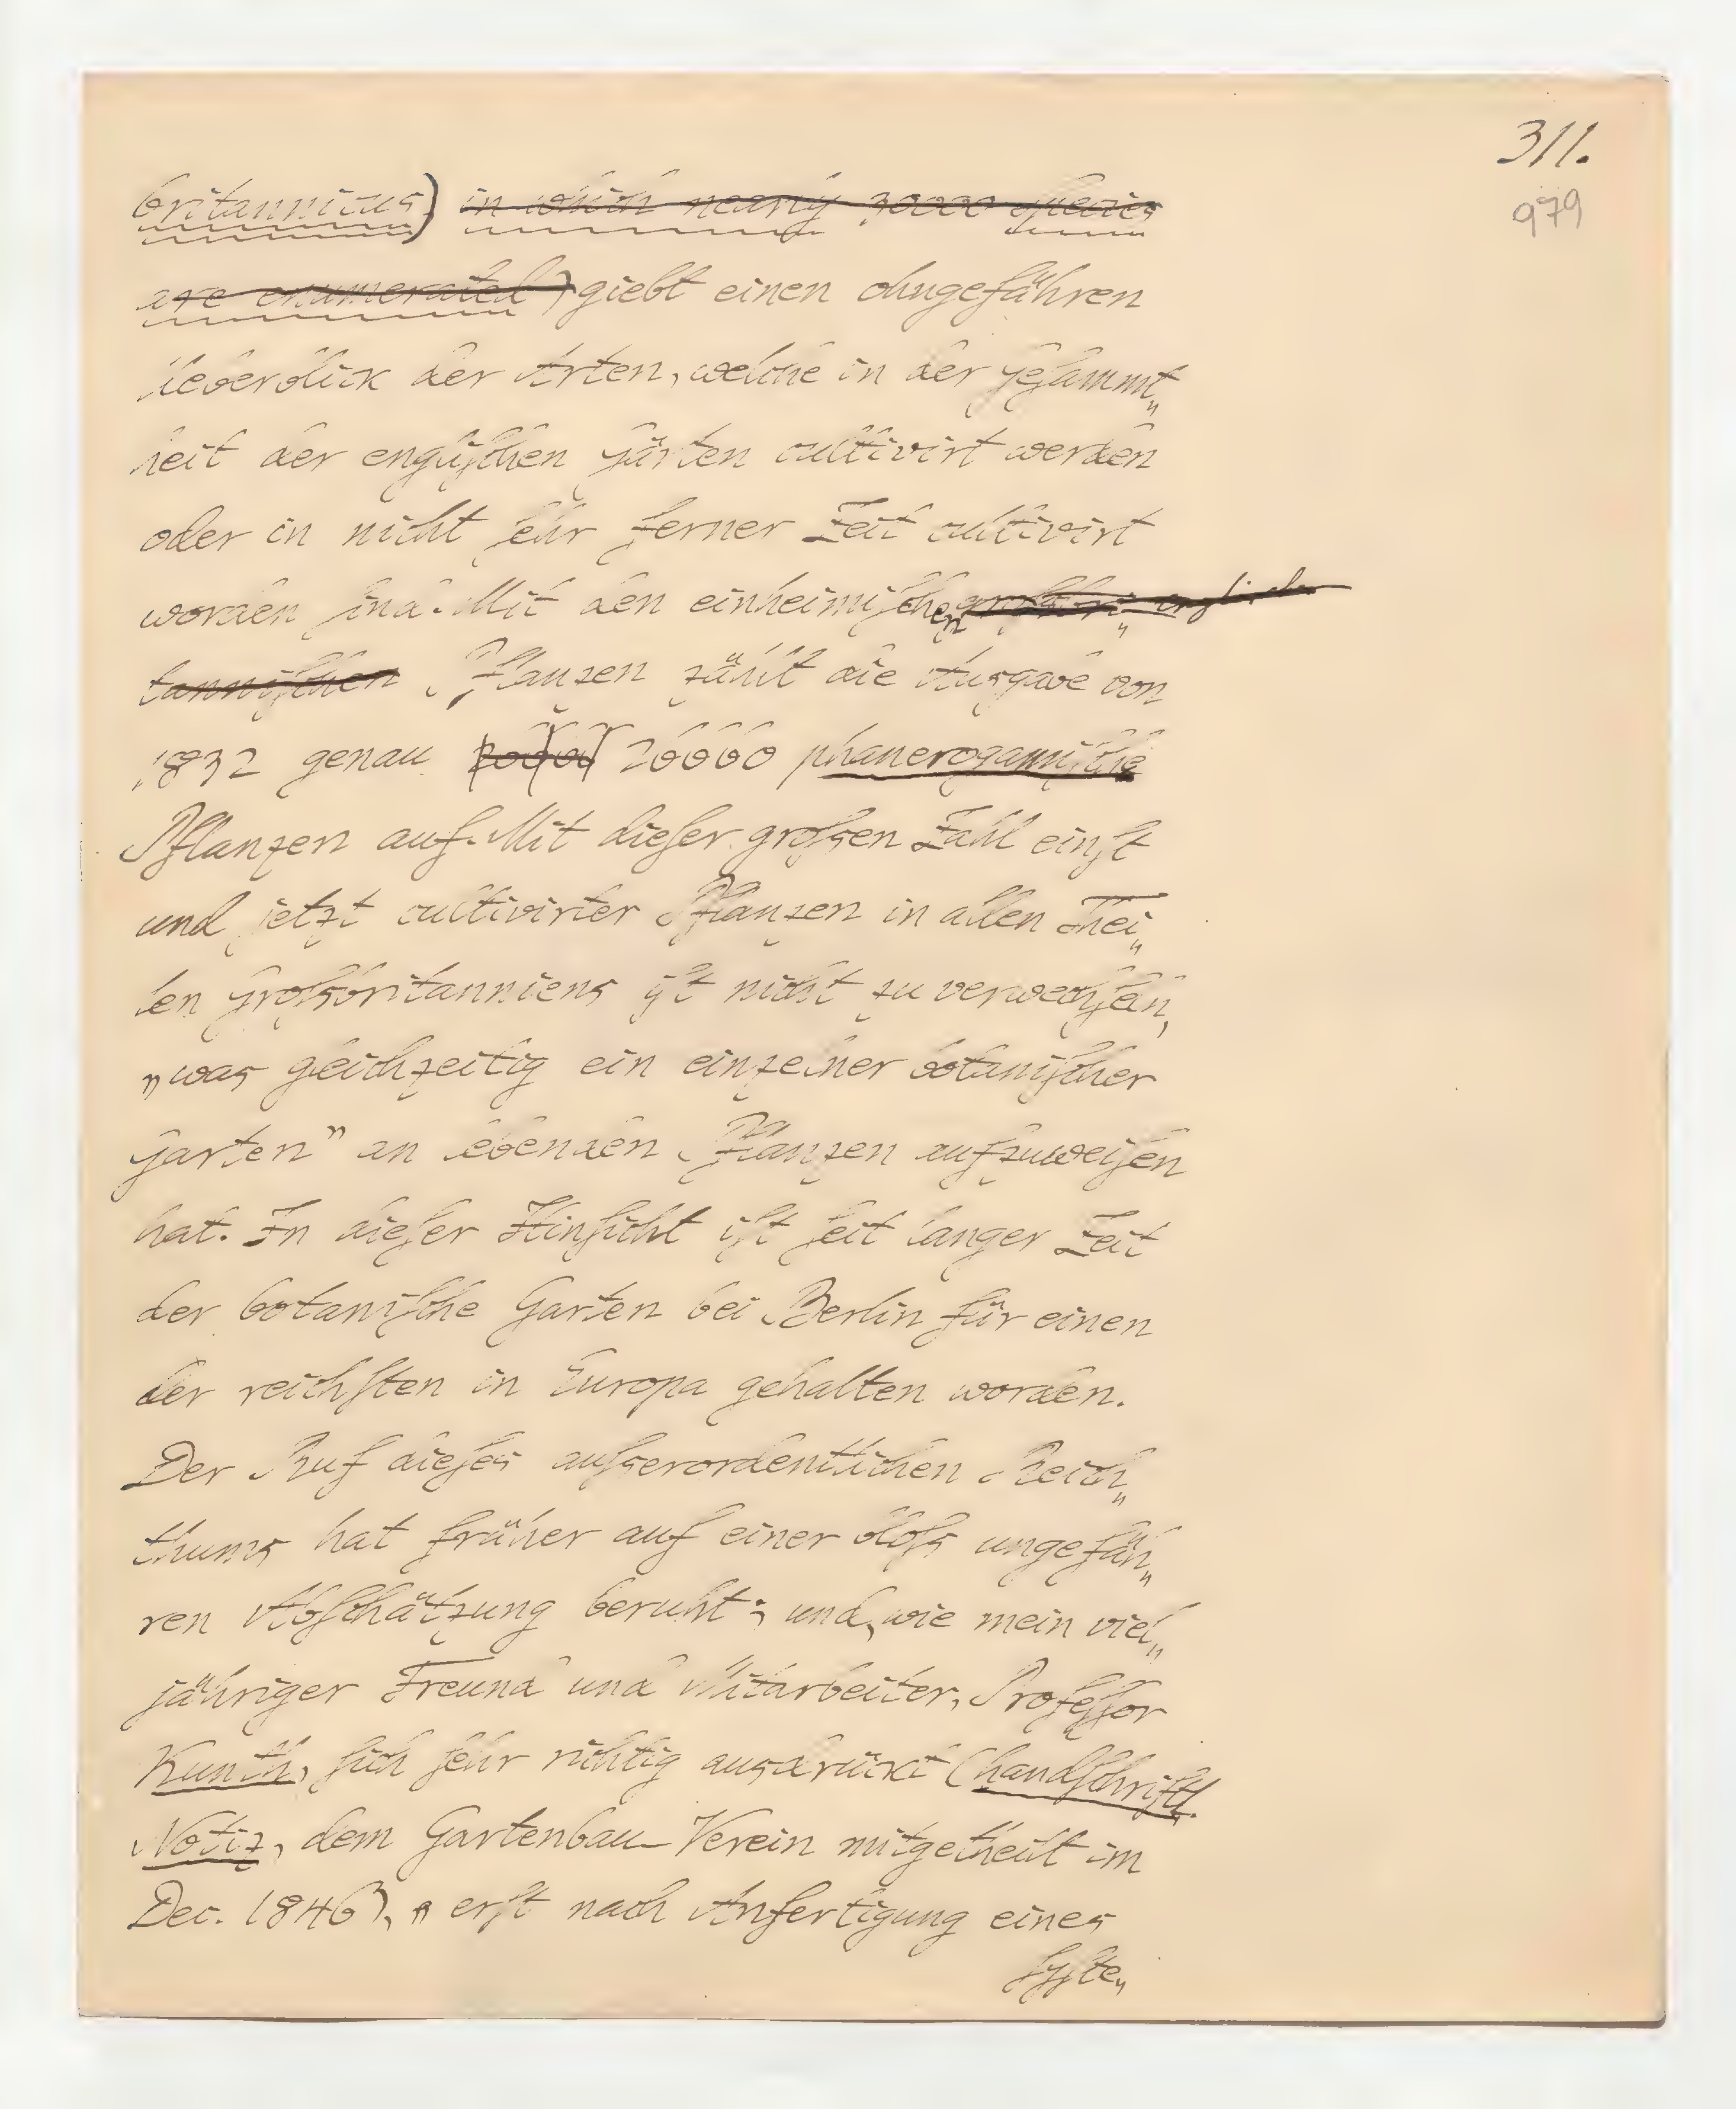 311.
979
britannicus) in which nearly 30000 species
are enumerated) giebt einen ohngefähren
Ueberblick der Arten, welche in der Gesammt„
heit der englischen Gärten cultivirt werden
oder in nicht sehr ferner Zeit cultivirt
worden sind. Mit den einheimischen
tannischen Pflanzen zählt die Ausgabe von
1832 genau 26660 phanerogamische
Pflanzen auf. Mit dieser grofsen Zahl einst
und jetzt cultivirter Pflanzen in allen Thei„
len Grofsbritanniens ist nicht zu verwechseln,
„was gleichzeitig ein einzelner botanischer
Garten” an lebenden Pflanzen aufzuweisen
hat. In dieser Hinsicht ist seit langer Zeit
der botanische Garten bei Berlin für einen
der reichsten in Europa gehalten worden.
Der Ruf dieses aufserordentlichen Reich„
thums hat früher auf einer blofs ungefäh„
ren Abschätzung beruht; und, wie mein viel„
jähriger Freund und Mitarbeiter, Professor
Kunth, sich sehr richtig ausdrückt (handschriftl.
Notiz, dem Gartenbau-Verein mitgetheilt im
Dec. 1846), „erst nach Anfertigung eines
syste„